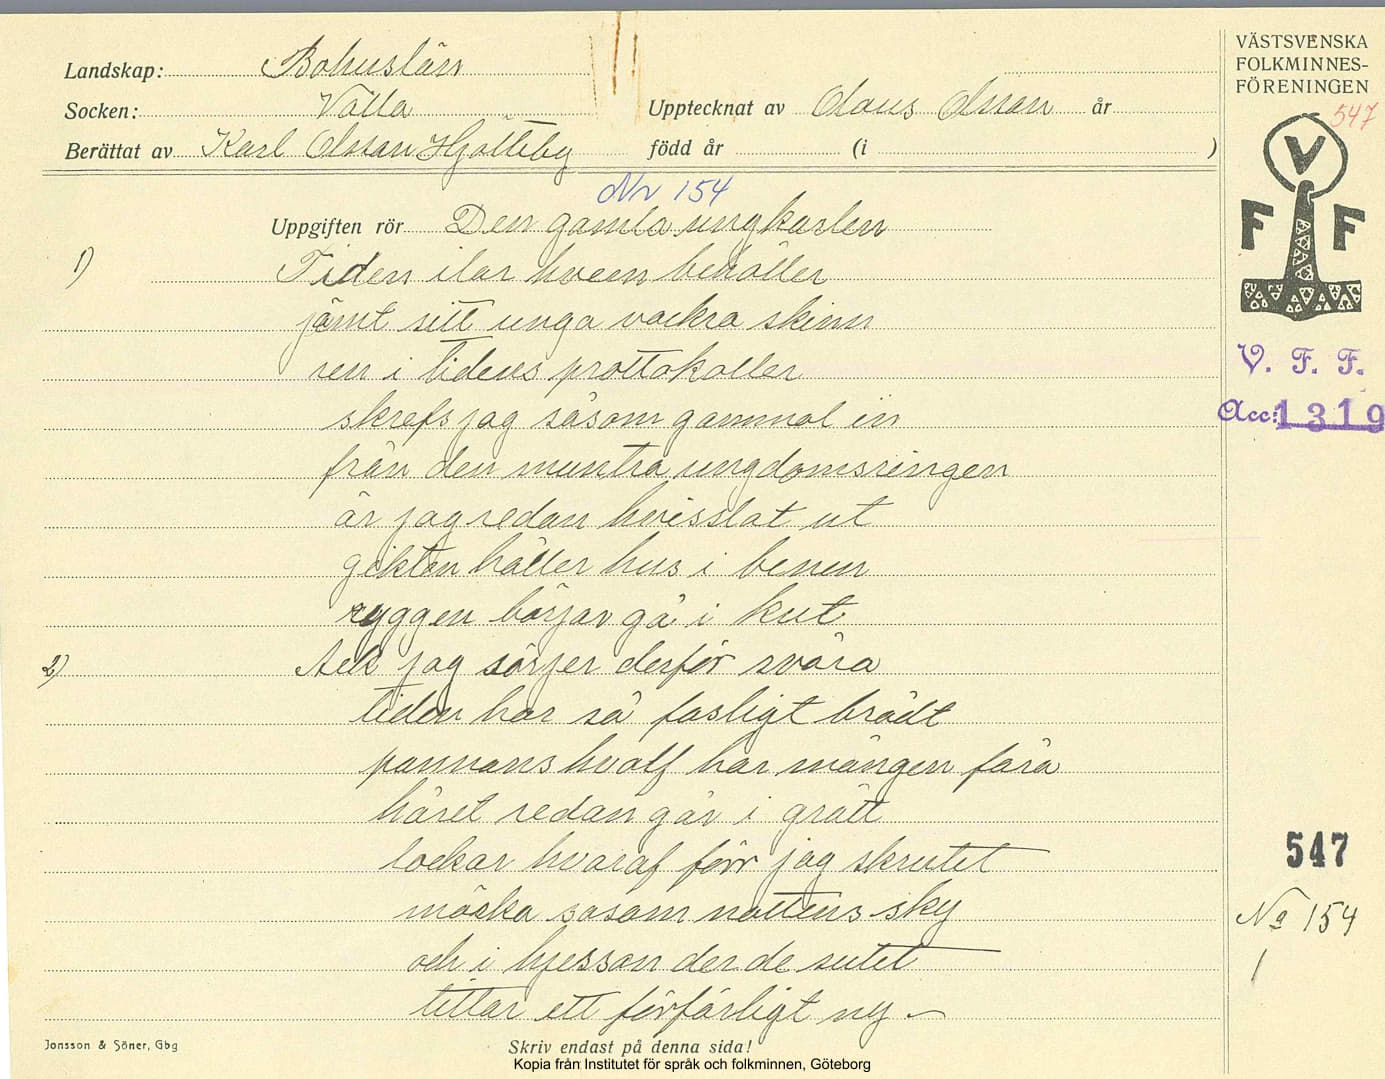 Landskap: Bohuslän
Socken: Valla
Upptecknat av Olaus Olsson år
Berättat av Karl Olsson Hjälteby född år (i )
Nr 154
Uppgiften rör Den gamla ungkarlen
1) Tiden ilar hveem behåller
jämt sitt unga vackra skinn
ren i tidens prottokoller
skrefs jag såsom gammal in
från den muntra ungdomsringen
är jag redan hvisslat ut
gikten håller hus i benen
ryggen börjar gå i kut
2) Ack jag sörjer derför svåra
tiden har så fasligt brådt
pannans hvalf har mången fåra
håret redan går i grått
lockar hvaraf förr jag skrutit
mörka sosom nattens sky
och i hjesson der de sutit
tittar ett förfärligt ny
Jonsson & Söner, Gbg
Skriv endast på denna sida!
Kopia från Institutet för språk och folkminnen, Göteborg
VÄSTSVENSKA
FOLKMINNES-
FÖRENINGEN
547
V
F F
V. F. F.
Acc: 1319
547
No 154
1